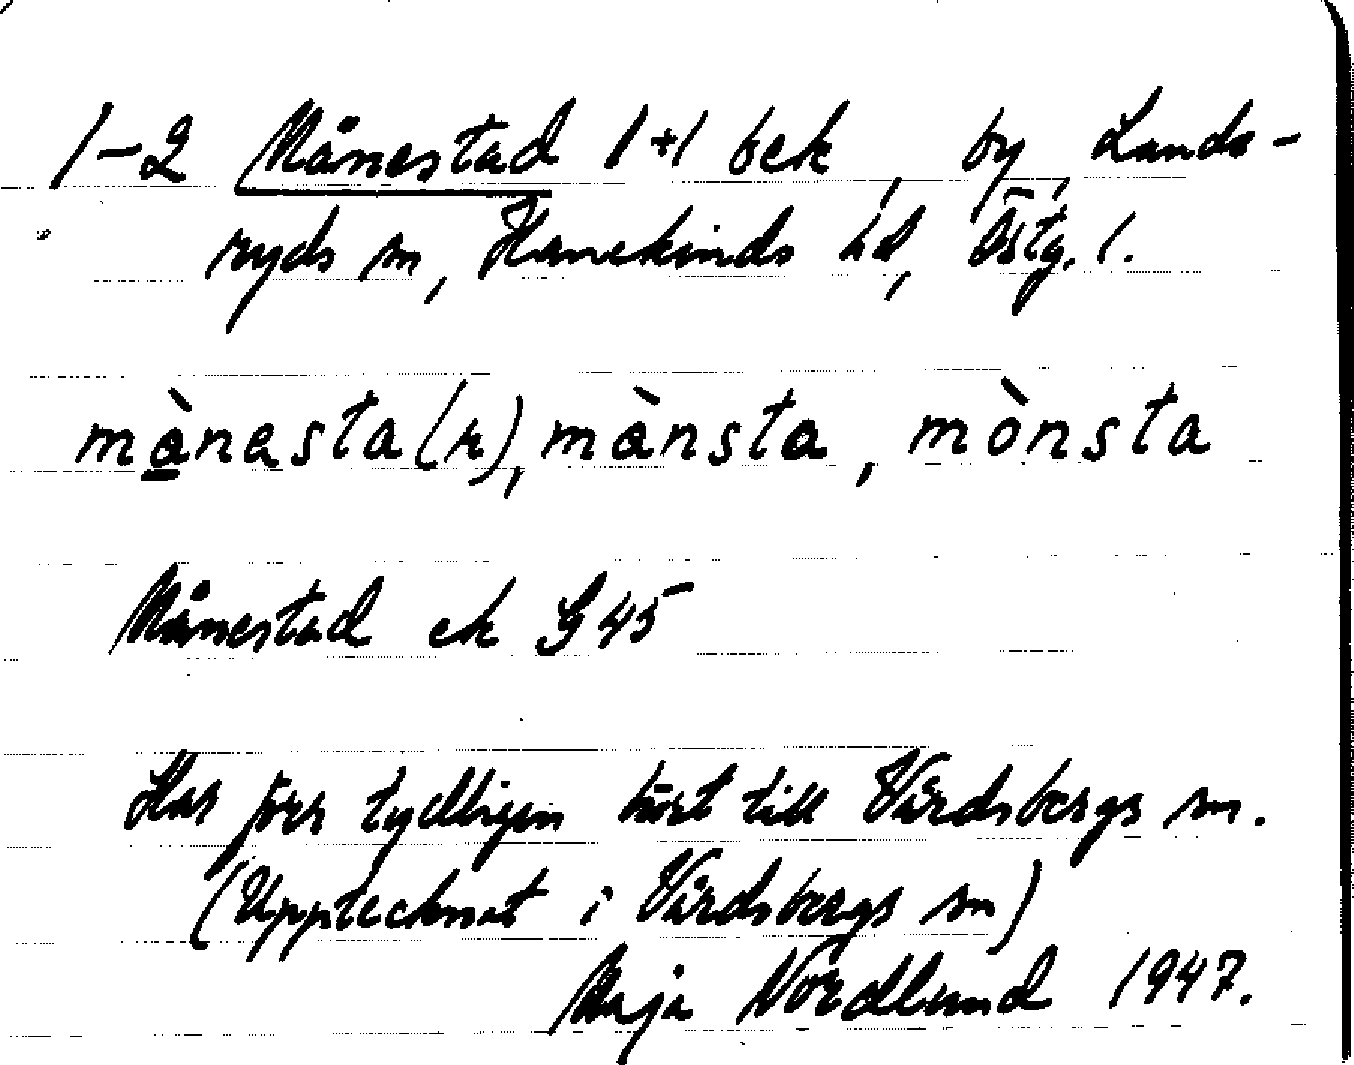 1-2 Månestad 1+1 bek, by, Lands-
ryds sn, Hanekinds hd, Östg. l.
mànesta(r), mànsta, mònsta
Månestad ek G 45
Har förr tydligen hört till Vårdsbergs sn.
(Upptecknat i Vårdsbergs sn)
Maja Nordlund 1947.